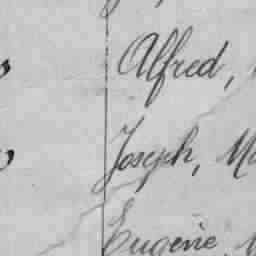 Alfred,
Joseph, Ma
Eugène